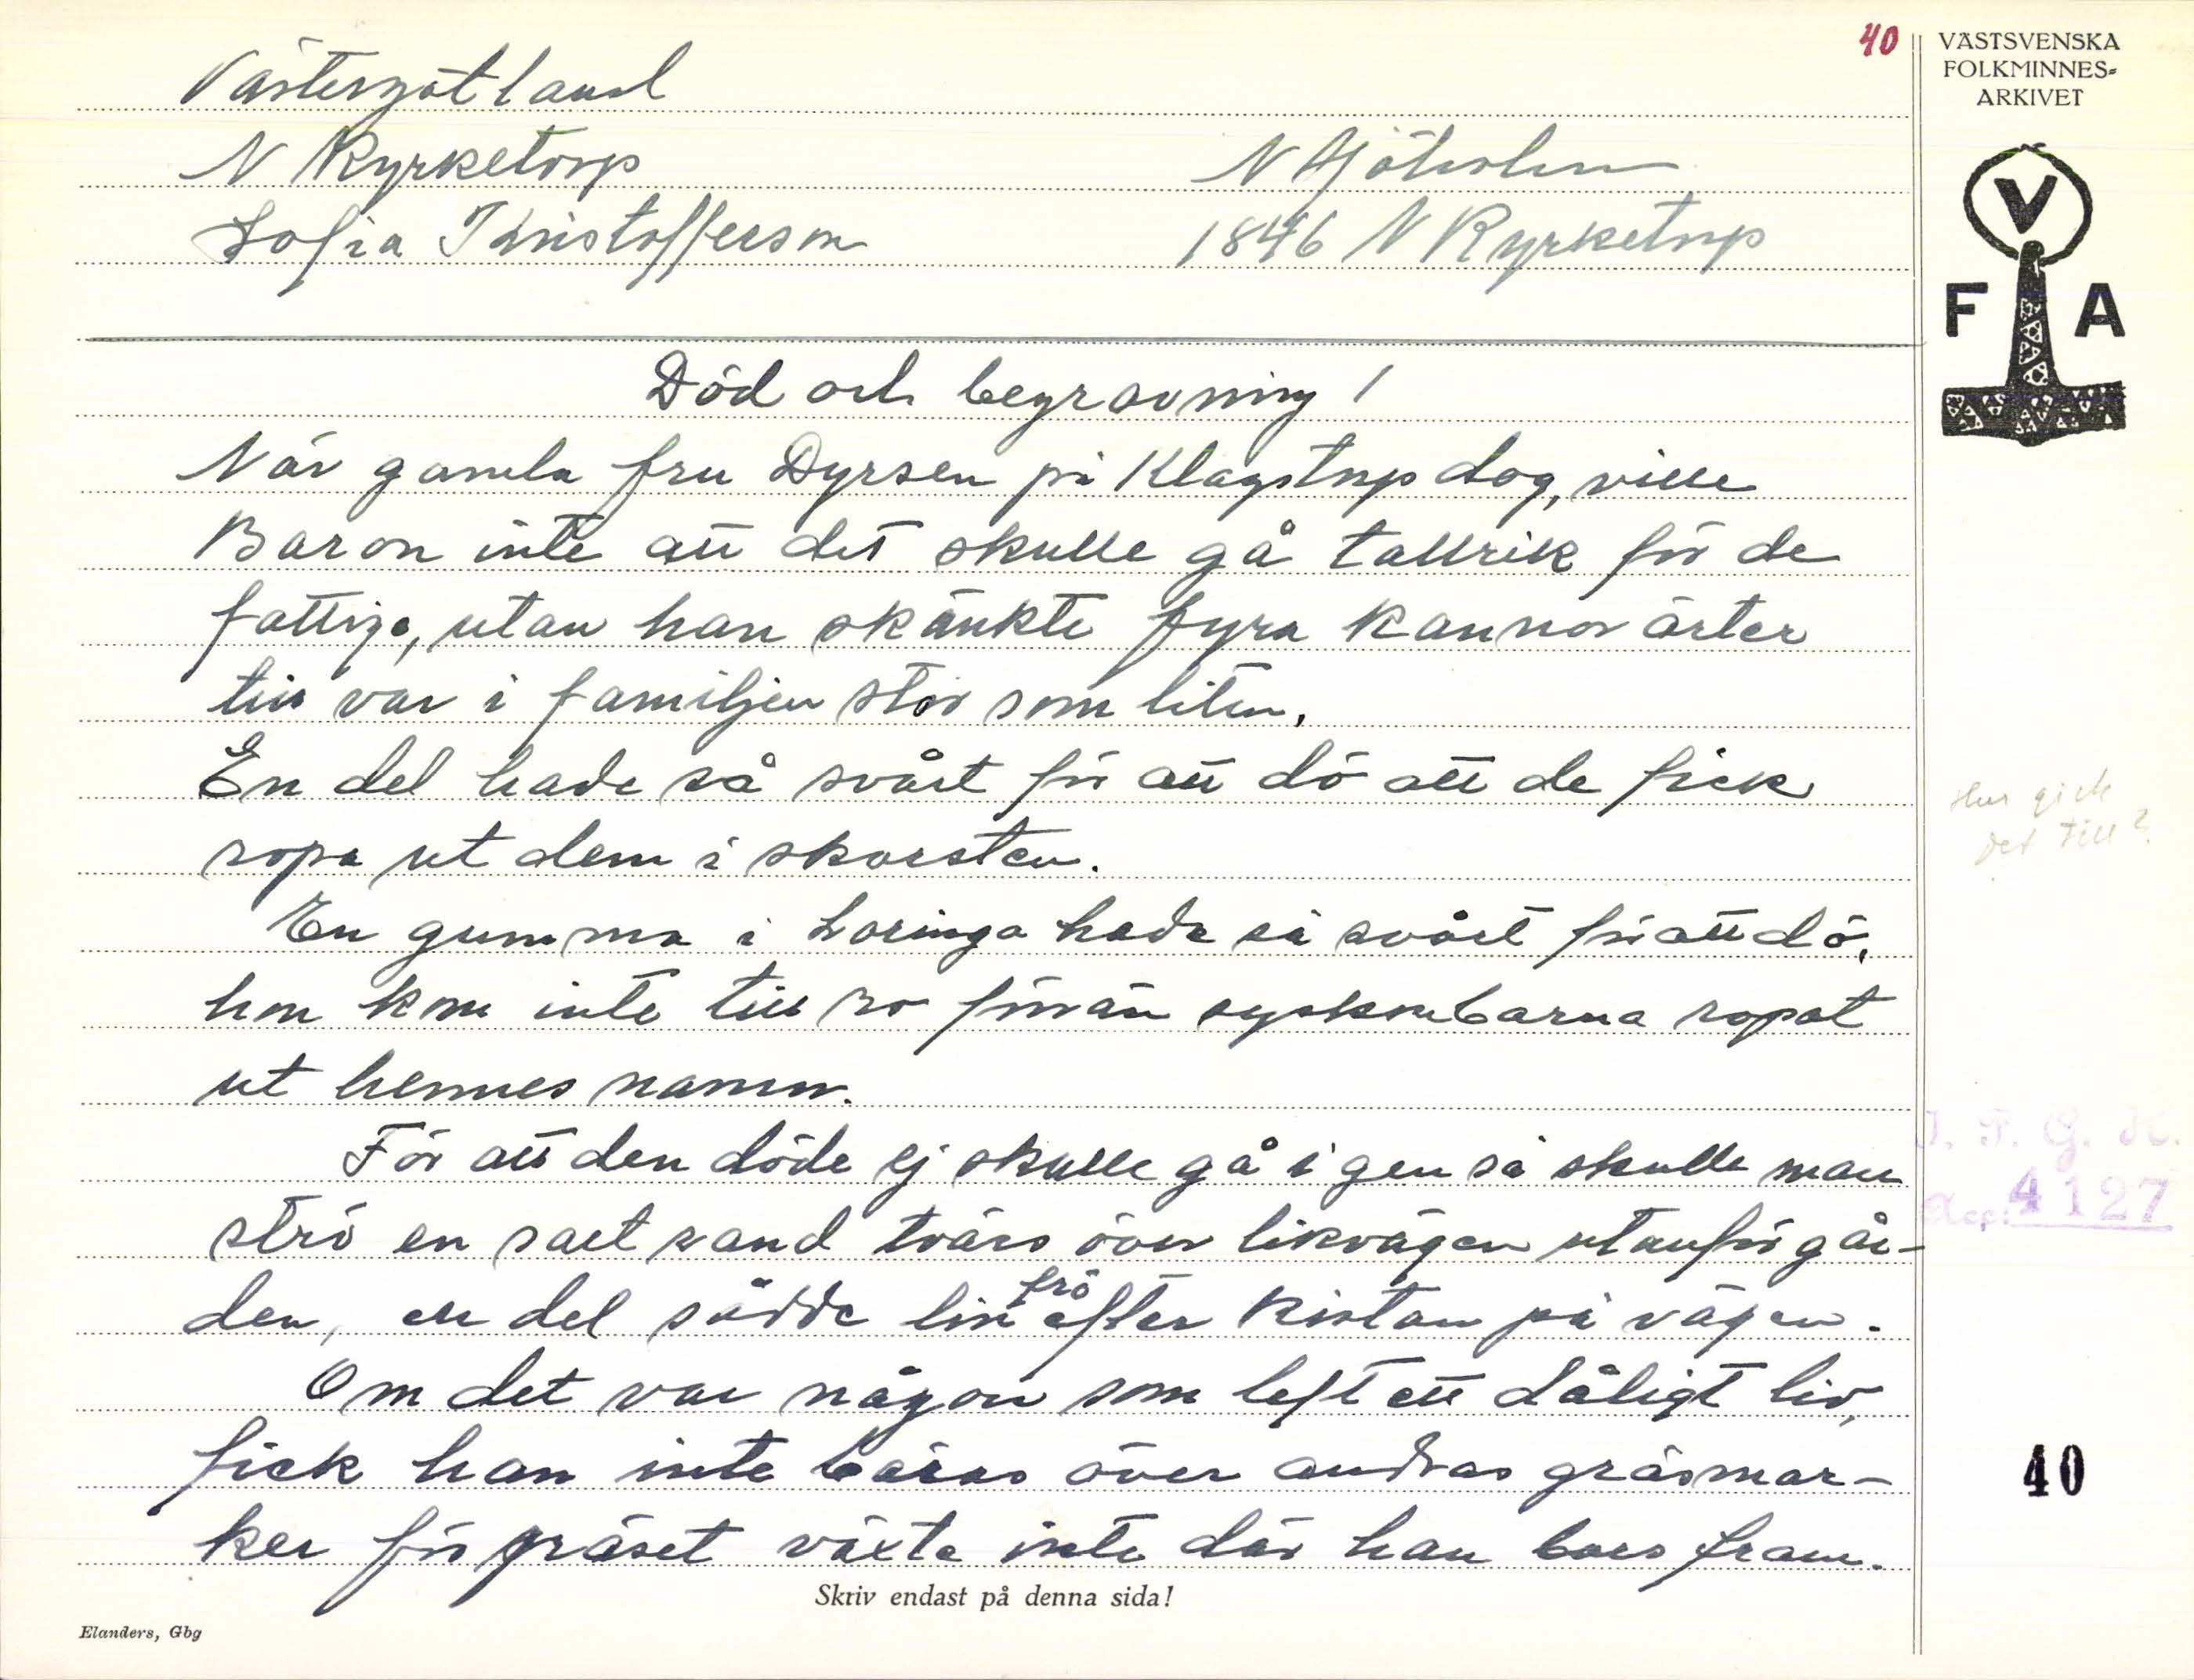 40
VÄSTSVENSKA
FOLKMINNES=
ARKIVET
V
F A
Västergötland
N Kyrketorp
N Sjöholm
Sofia Kristofferson
1846 N Kyrketorp
Död och begravning!
När gamla fru Dyrsen på Klagstorp dog, ville
Baron inte att det skulle gå tallrik för de
fattiga, utan han skänkte fyra kannor ärter
till var i familjen stor som liten.
En del hade så svårt för att dö att de fick
ropa ut dem i skorsten.
Hur gick
det till?
En gumma i Loringa hade så svårt för att dö,
hon kom inte till ro förrän syskonbarna ropat
ut hennes namn.
För att den döde ej skulle gå igen så skulle man
strö en sort sand tvärs över likvägen utanför går-
den, en del sådde linfrö efter kistan på vägen.
I. F. G. H.
Acc: 4127
Om det var någon som left ett dåligt liv,
fick han inte bäras över andras gräsmar-
ker för gräset växte inte där han bars fram.
40
Skriv endast på denna sida!
Elanders, Gbg